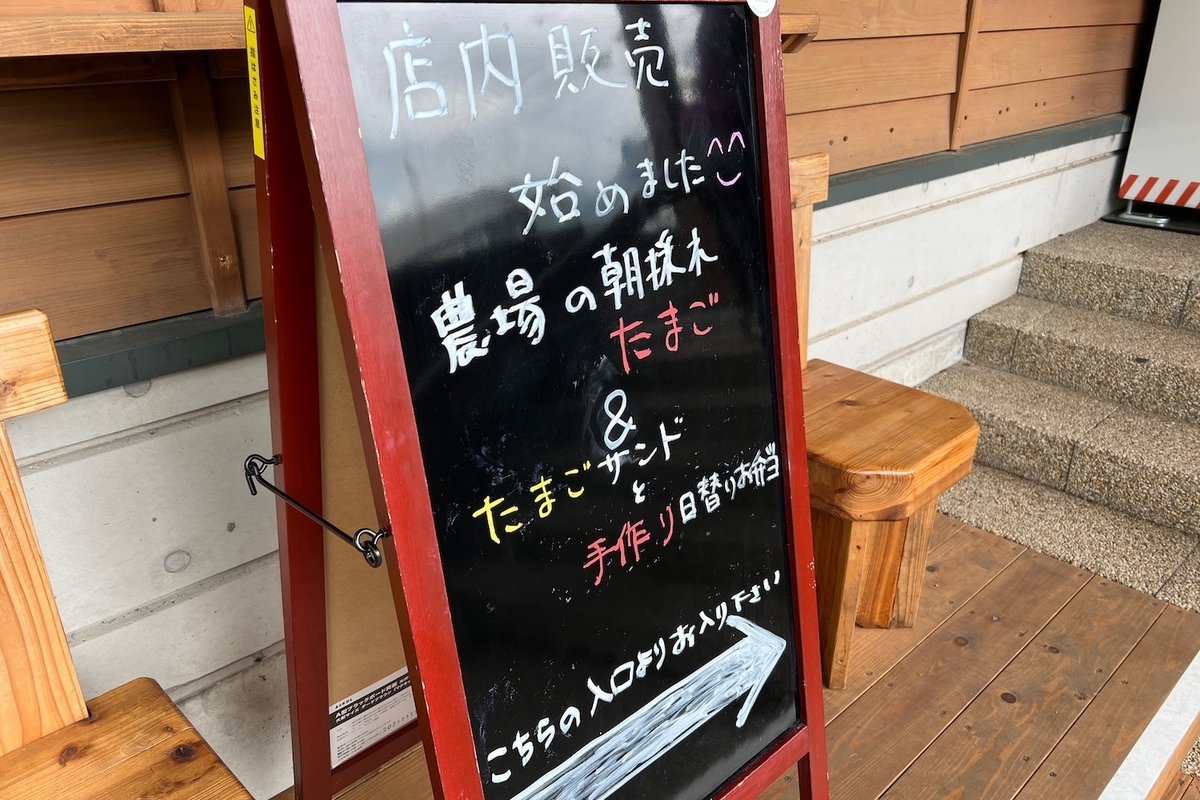 店内販売
始めました^^
農場の朝採れ
たまご
&
たまごサンド
と
手作り日替りお弁当
こちらの入口よりお入り下さい
指はさみ注意